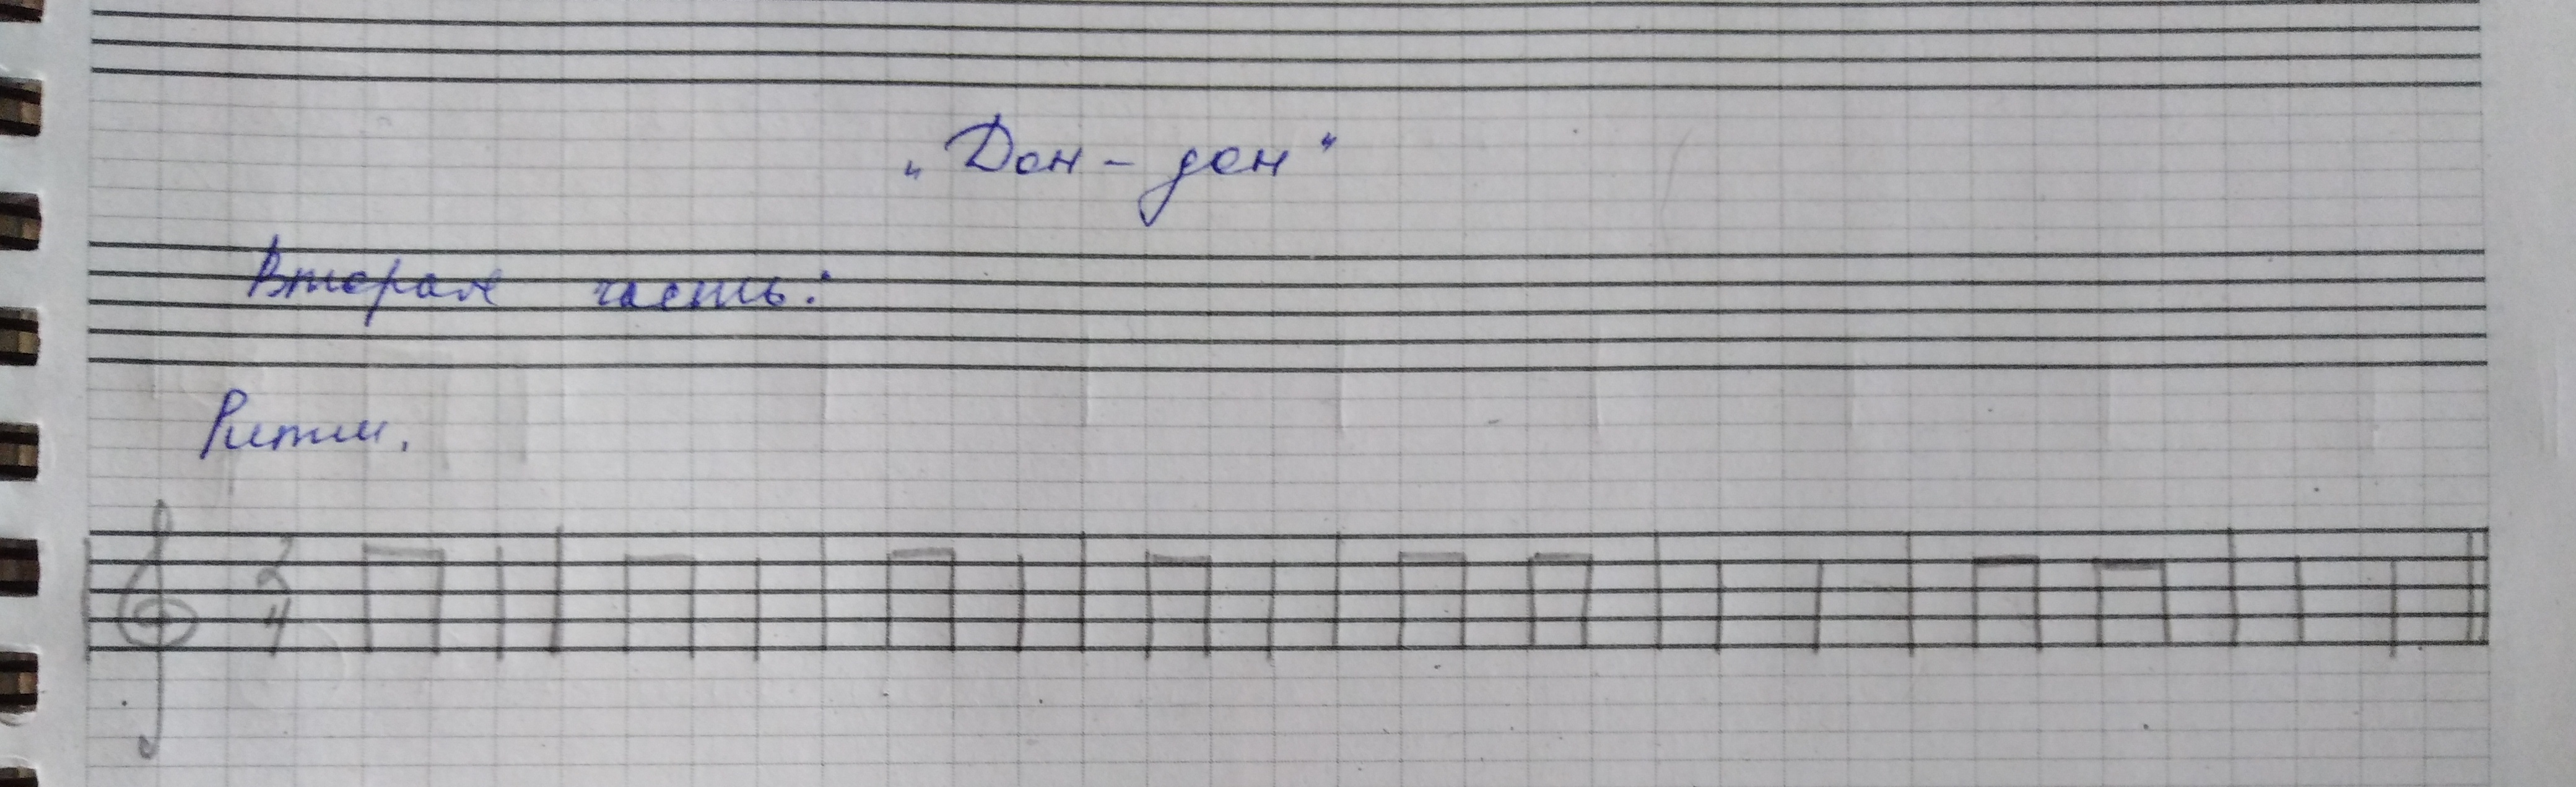 „Дон - дон"
Вторая часть:
Ритм.
2
4